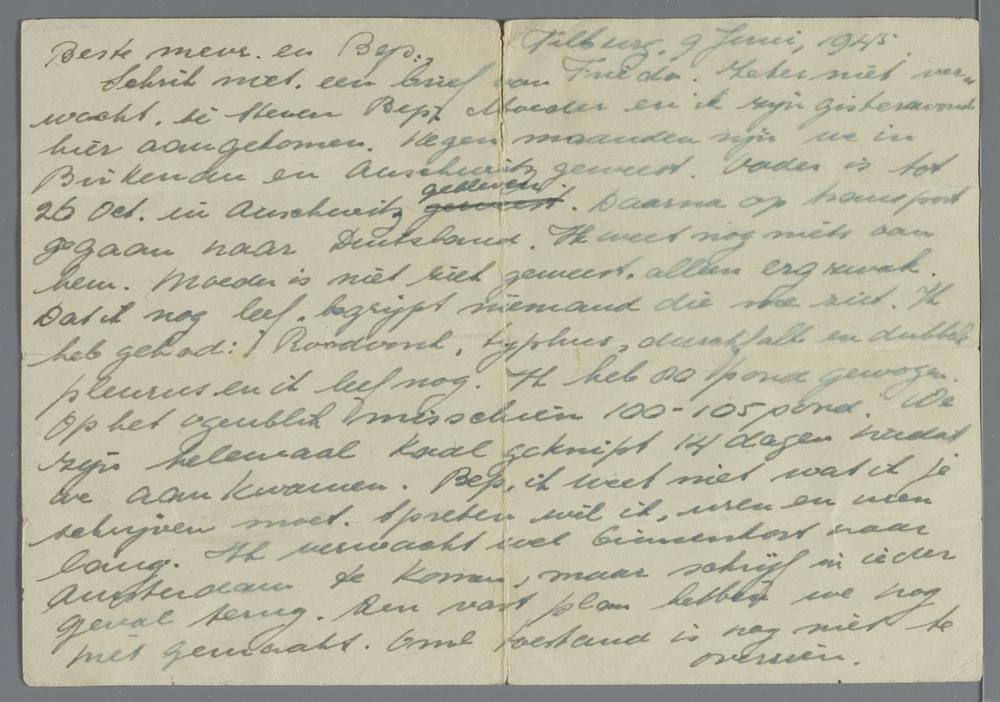 Tilburg, 9 Juni, 1945.
Beste mevr. en Bep.,
Schrik niet, een brief van Frieda. Zeker niet ver-
wacht, hè Bep? Moeder en ik zijn gisteravond
hier aangekomen. Negen maanden zijn we in
Birkenau en Auschwitz geweest. Vader is tot
26 Oct. in Auschwitz geweest gebleven. Daarna op transport
gegaan naar Duitsland. Ik weet nog niets van
hem. Moeder is niet ziek geweest, alleen erg zwak.
Dat ik nog leef, begrijpt niemand die me ziet. Ik
heb gehad: Roodvonk, typhus, durchfall en dubbele
pleuris en ik leef nog. Ik heb pond gewogen.
Op het ogenblik misschien 100-105 pond. We
zijn helemaal kaal geknipt 14 dagen nadat
we aankwamen. Bep, ik weet niet wat ik je
schrijven moet. Spreken wil ik, uren en uren
lang. Ik verwacht wel binnenkort naar
Amsterdam te komen, maar schrijf in ieder
geval terug. Een vast plan hebben we nog
niet gemaakt. Onze toestand is nog niet te
overzien.